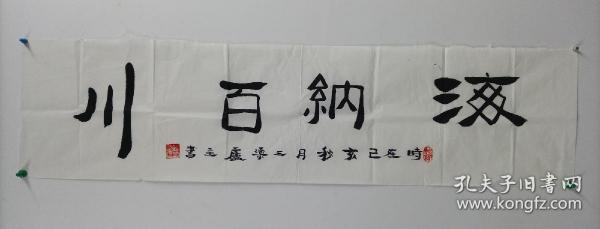 海納百川
時在己亥秋月三泳盧主書
孔夫子旧书网
www.kongfz.com